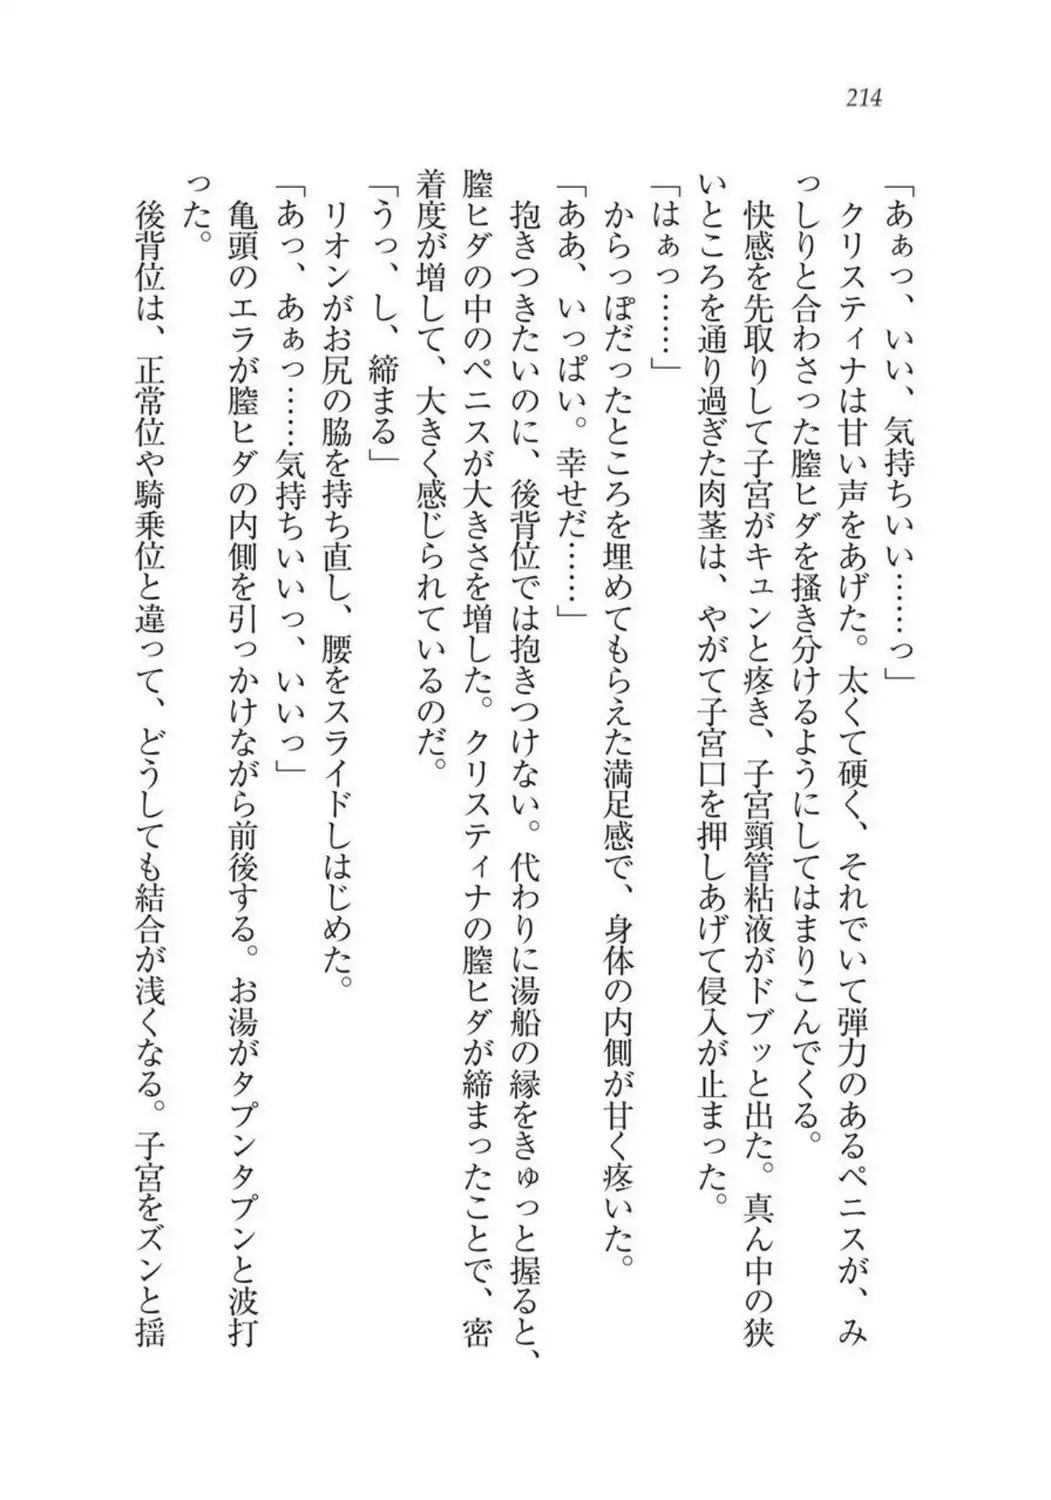 214
「あぁっ、いい、気持ちいい……っ」
　クリスティナは甘い声をあげた。太くて硬く、それでいて弾力のあるペニスが、み
っしりと合わさった膣ヒダを掻き分けるようにしてはまりこんでくる。
　快感を先取りして子宮がキュンと疼き、子宮頸管粘液がドブッと出た。真ん中の狭
いところを通り過ぎた肉茎は、やがて子宮口を押しあげて侵入が止まった。
「はぁっ……」
　からっぽだったところを埋めてもらえた満足感で、身体の内側が甘く疼いた。
「ああ、いっぱい。幸せだ……」
　抱きつきたいのに、後背位では抱きつけない。代わりに湯船の縁をきゅっと握ると、
膣ヒダの中のペニスが大きさを増した。クリスティナの膣ヒダが締まったことで、密
着度が増して、大きく感じられているのだ。
「うっ、し、締まる」
　リオンがお尻の脇を持ち直し、腰をスライドしはじめた。
「あっ、あぁっ……気持ちいいっ、いいっ」
　亀頭のエラが膣ヒダの内側を引っかけながら前後する。お湯がタプンタプンと波打
った。
　後背位は、正常位や騎乗位と違って、どうしても結合が浅くなる。子宮をズンと揺